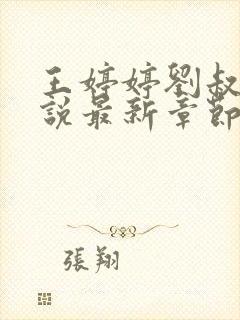 王婷婷劉叔
說最新章節
張翔